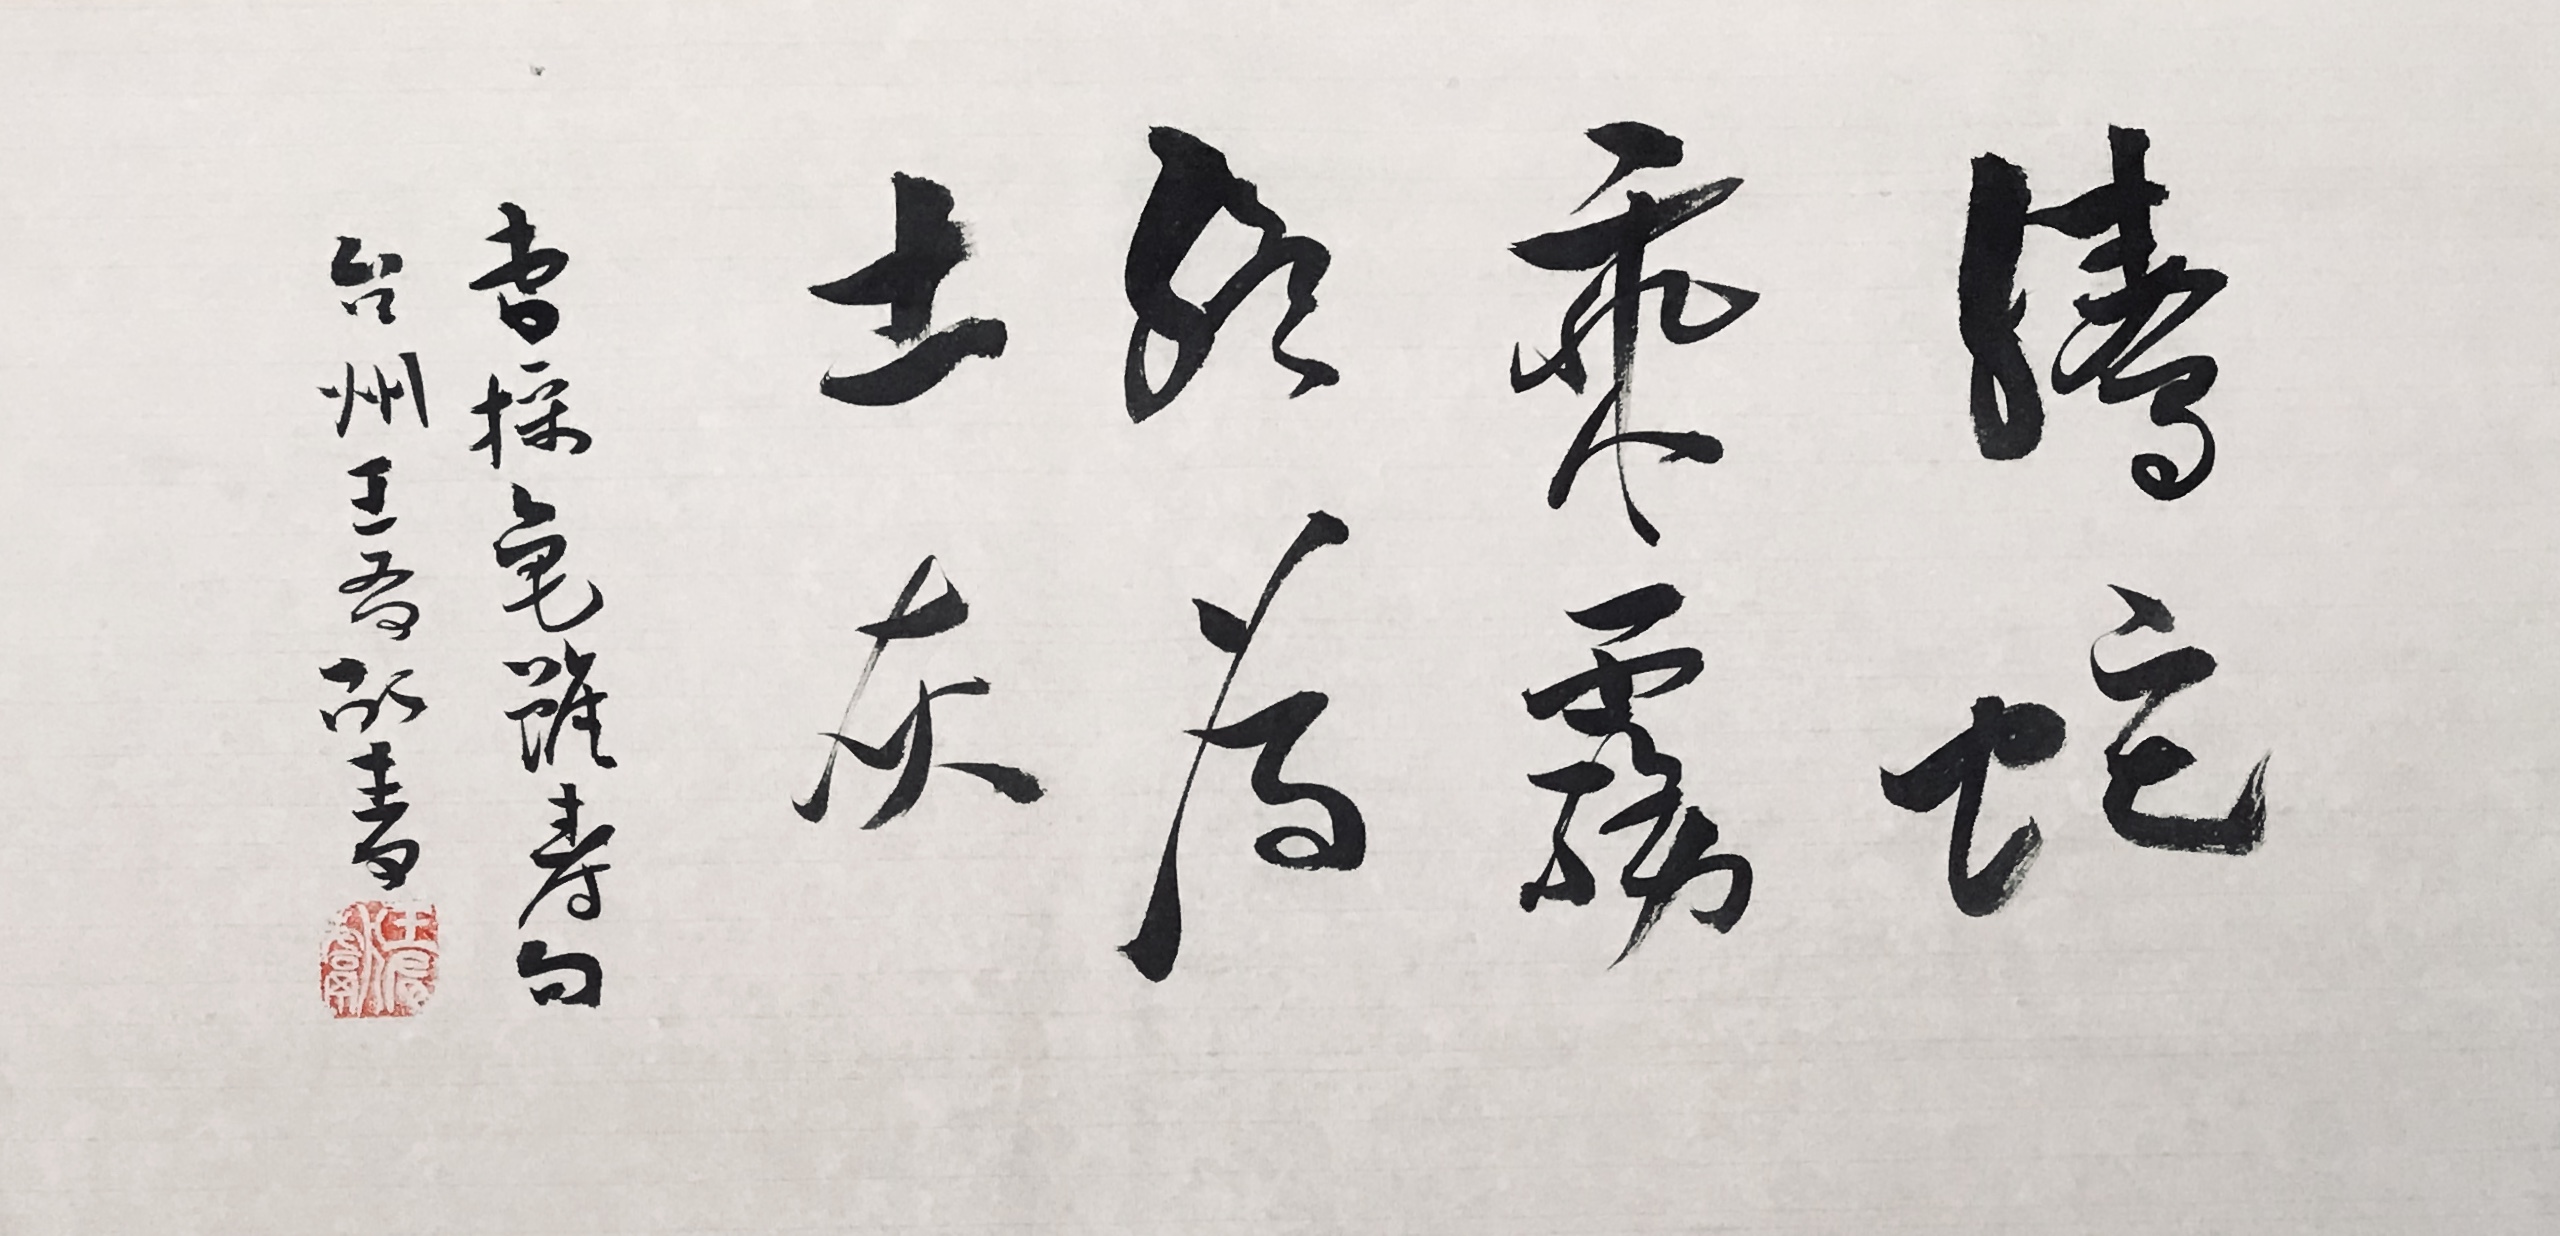 騰蛇
乘霧
終為
土灰
曹操龜雖壽句
台州王
書